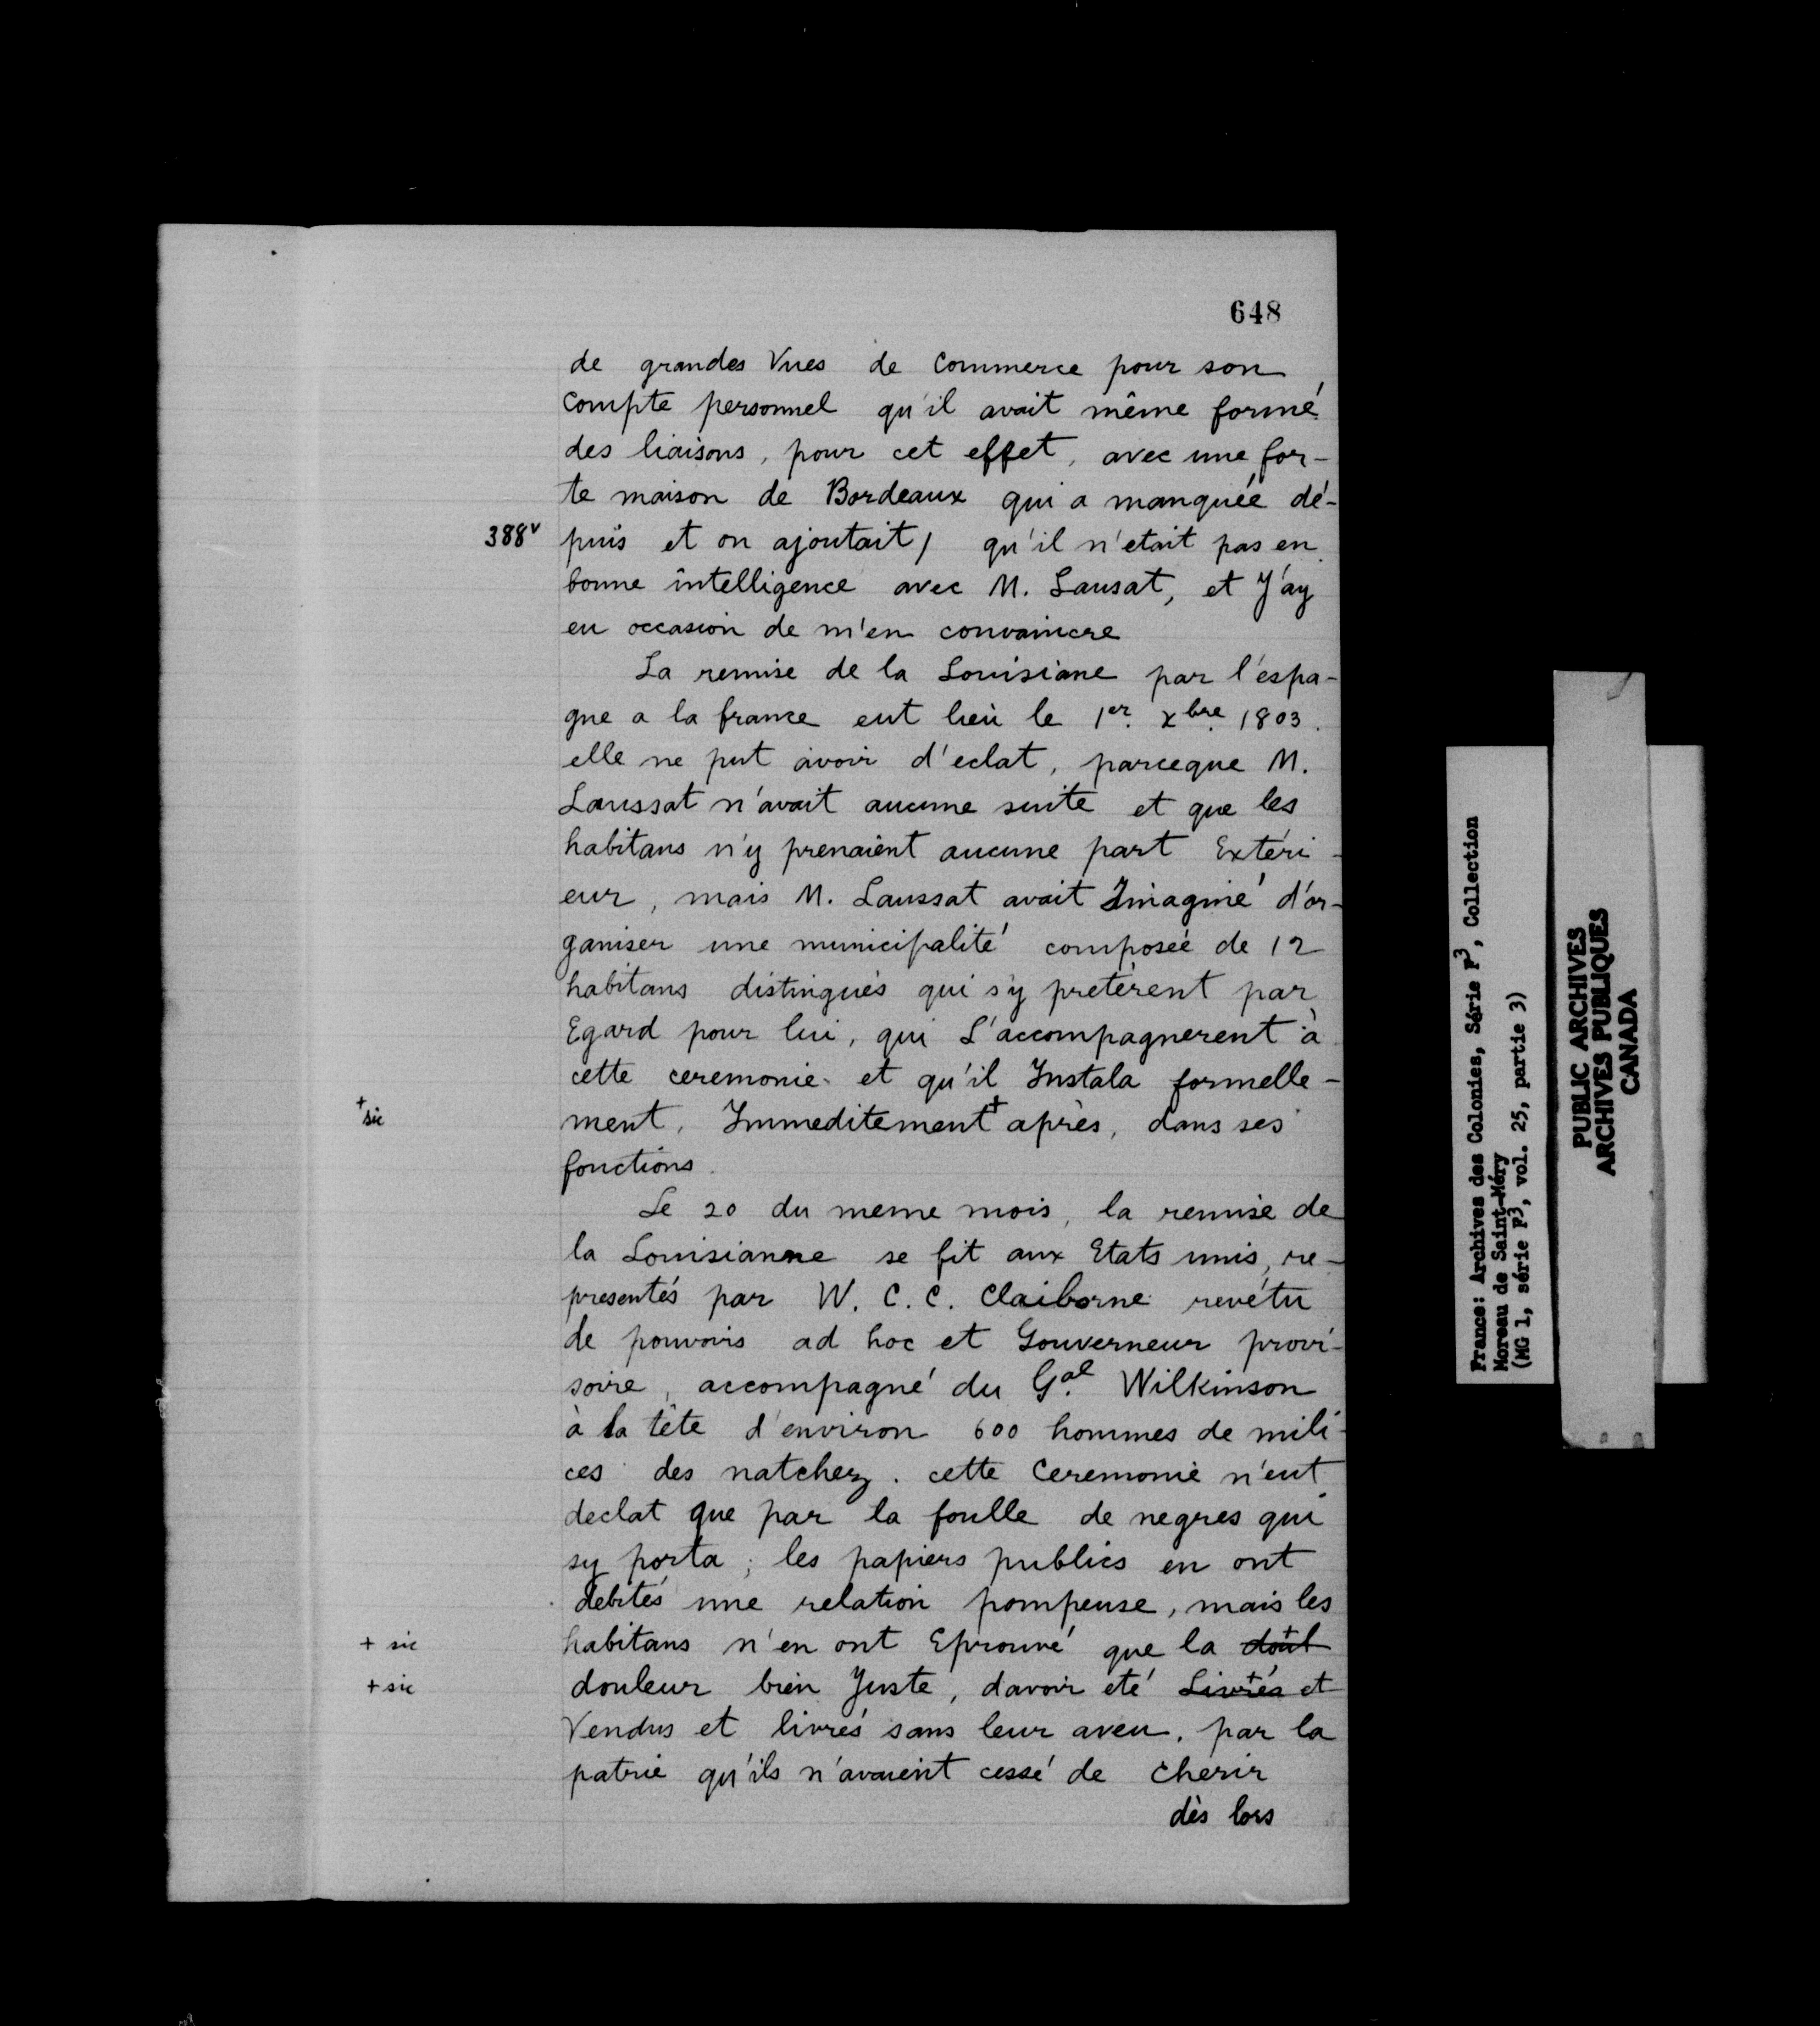 648
de grandes Vues de Commerce pour son
Compte personnel qu'il avait même formé
des liaisons, pour cet effet, avec une for-
te maison de Bordeaux qui a manquée dé-
388v puis et on ajoutait / qu'il n'etait pas en
bonne intelligence avec M. Lausat, et J'ay
eu occasion de m'en convaincre
La remise de la Louisiane par l'espa-
gne a la france eut lieu le 1er. xbre. 1803.
elle ne put avoir d'eclat, parceque M.
Laussat n'avait aucune suite et que les
habitans n'y prenaient aucune part Extéri-
eur, mais M. Laussat avait Imaginé d'or-
ganiser une municipalité composeé de 12
habitans distingués qui s'y pretèrent par
Egard pour lui, qui L'accompagnerent à
cette ceremonie et qu'il Instala formelle-
+ sic ment, Immeditement + après, dans ses
fonctions.
Le 20 du meme mois, la remise de
la Louisianne se fit aux Etats unis, re-
presentés par W. C. C. Claiborne revétu
de pouvoirs ad hoc et Gouverneur provi-
soire, accompagné du Gal. Wilkinson
à la tête d'environ 600 hommes de mili-
ces des natchez. cette Ceremonie n'eut
declat que par la foulle de negres qui
sy porta; les papiers publics en ont
debités une relation pompeuse, mais les
+ sic habitans n'en ont Eprouvé que la doul +
+ sic douleur bien Juste, davoir eté Livrés + et
Vendus et livrés sans leur aveu, par la
patrie qu'ils n'avaient cessé de cherir
dès lors
France: Archives des Colonies, Série F3, Collection
Moreau de Saint-Méry
(MG 1, série F3, vol. 25, partie 3)
PUBLIC ARCHIVES
ARCHIVES PUBLIQUES
CANADA